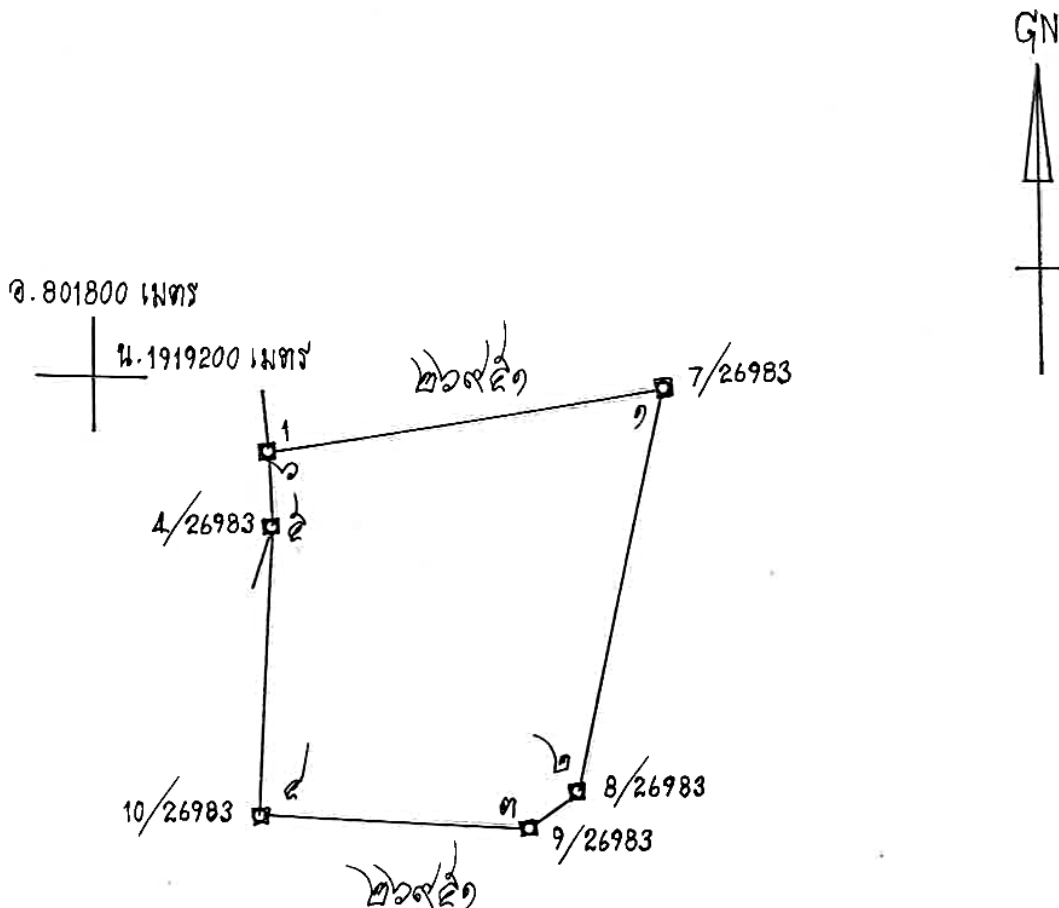 GN
อ.801800 เมตร
น.1919200 เมตร
๒๖๙๕๑
7/26983
๑
1
๖
4/26983
๕
๒
8/26983
10/26983
๔
๓
9/26983
๒๖๙๕๑